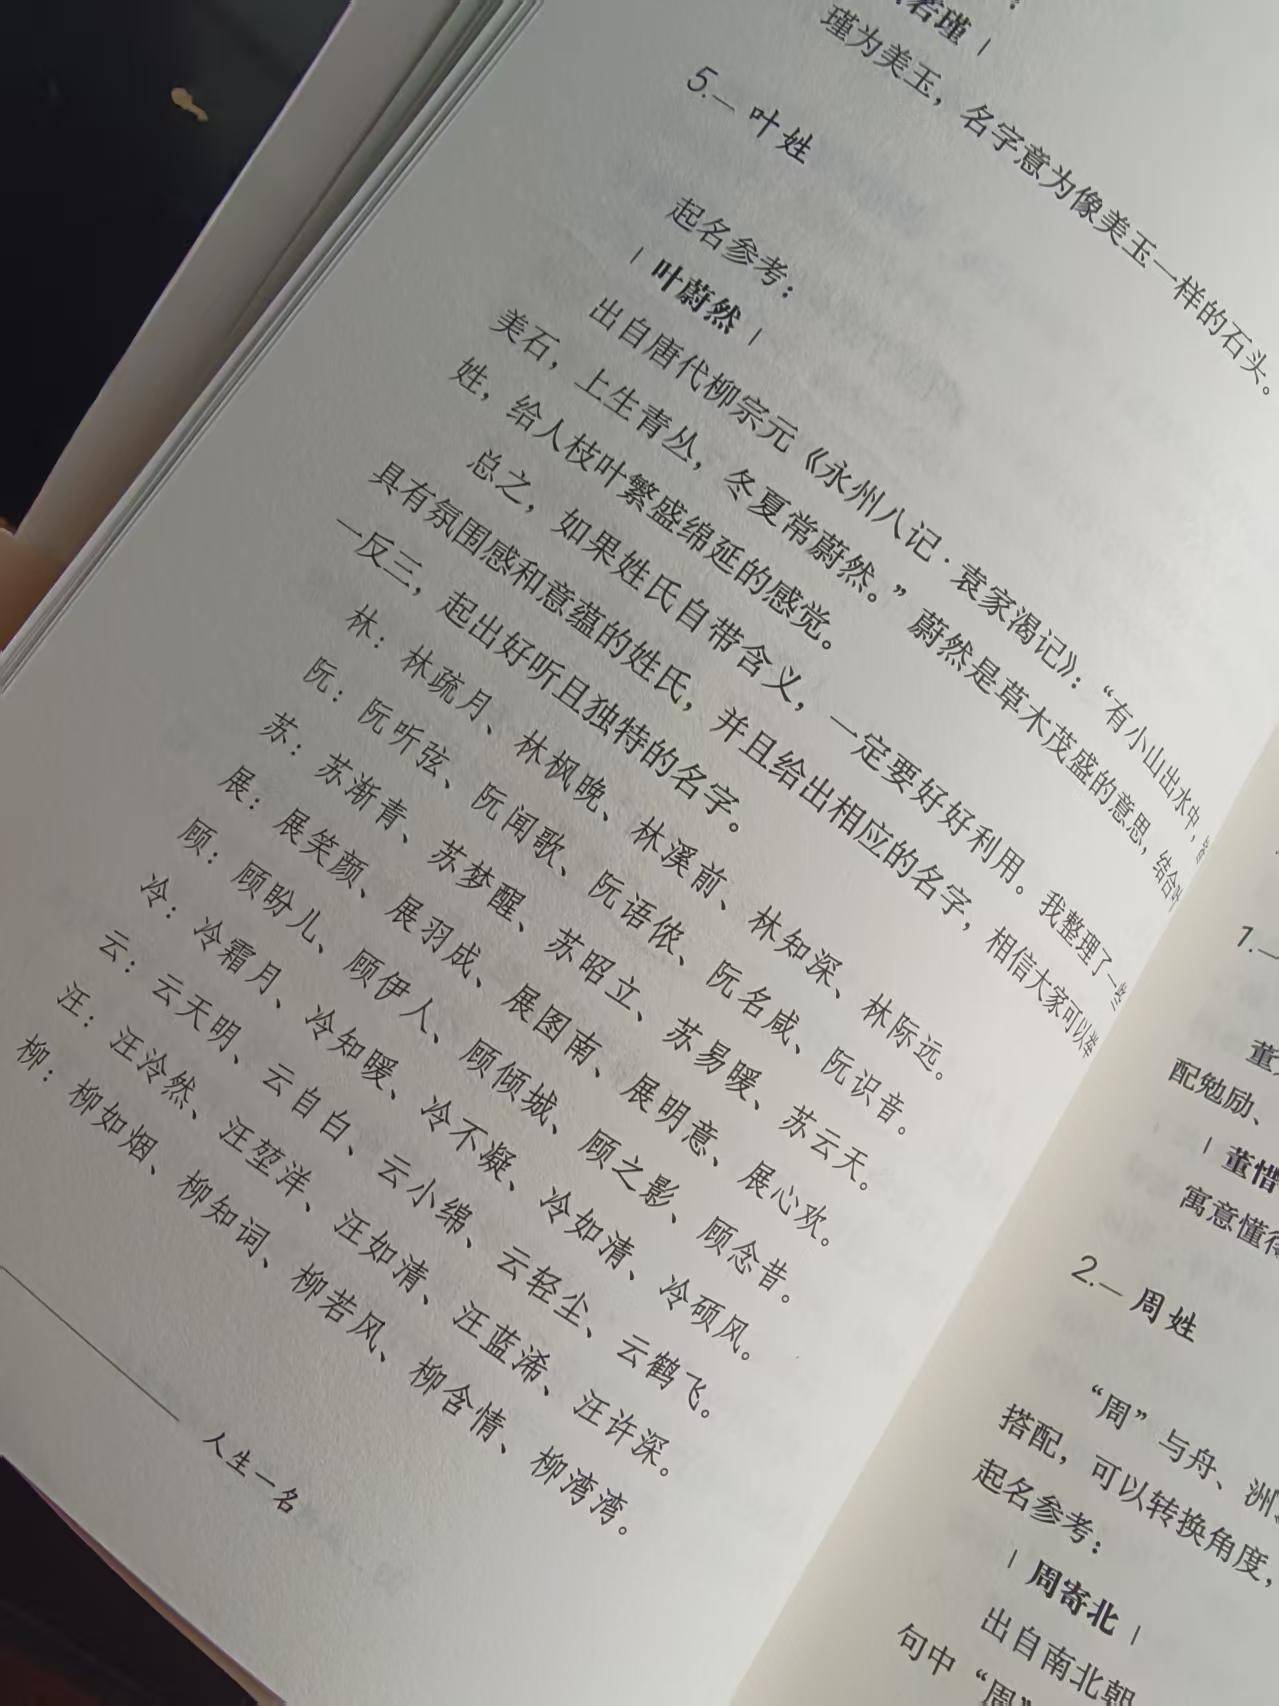 若瑾 |
瑾为美玉，名字意为像美玉一样的石头。
5.— 叶姓
起名参考：
| 叶蔚然 |
出自唐代柳宗元《永州八记·袁家渴记》：“有小山出水中，皆
美石，上生青丛，冬夏常蔚然。”蔚然是草木茂盛的意思，结合叶
姓，给人枝叶繁盛绵延的感觉。
总之，如果姓氏自带含义，一定要好好利用。我整理了一些
具有氛围感和意蕴的姓氏，并且给出相应的名字，相信大家可以举
一反三，起出好听且独特的名字。
林：林疏月、林枫晚、林溪前、林知深、林际远。
阮：阮听弦、阮闻歌、阮语侬、阮名咸、阮识音。
苏：苏渐青、苏梦醒、苏昭立、苏易暖、苏云天。
展：展笑颜、展羽成、展图南、展明意、展心欢。
顾：顾盼儿、顾伊人、顾倾城、顾之影、顾念昔。
冷：冷霜月、冷知暖、冷不凝、冷如清、冷硕风。
云：云天明、云自白、云小绵、云轻尘、云鹤飞。
汪：汪泠然、汪堃洋、汪如清、汪蓝浠、汪许深。
柳：柳如烟、柳知词、柳若风、柳含情、柳湾湾。
人生一名
1.—
董
配勉励、
| 董惜
寓意懂得
2.— 周姓
“周”与舟、洲
搭配，可以转换角度，
起名参考：
| 周寄北 |
出自南北朝
句中“周”